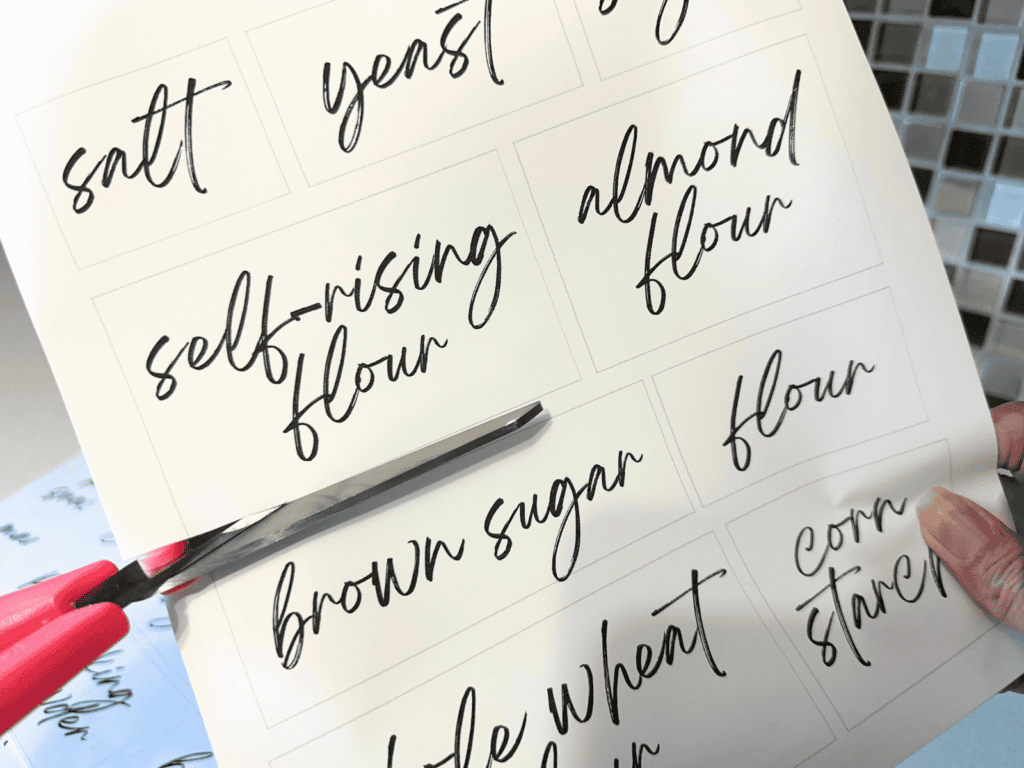 salt
yeast
self-rising
flour
almond
flour
brown sugar
flour
corn
starch
wheat